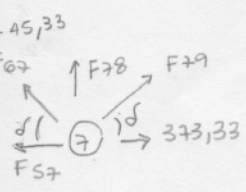 - 45,33
F67
F78
F79
δ
7
δ
373,33
F57